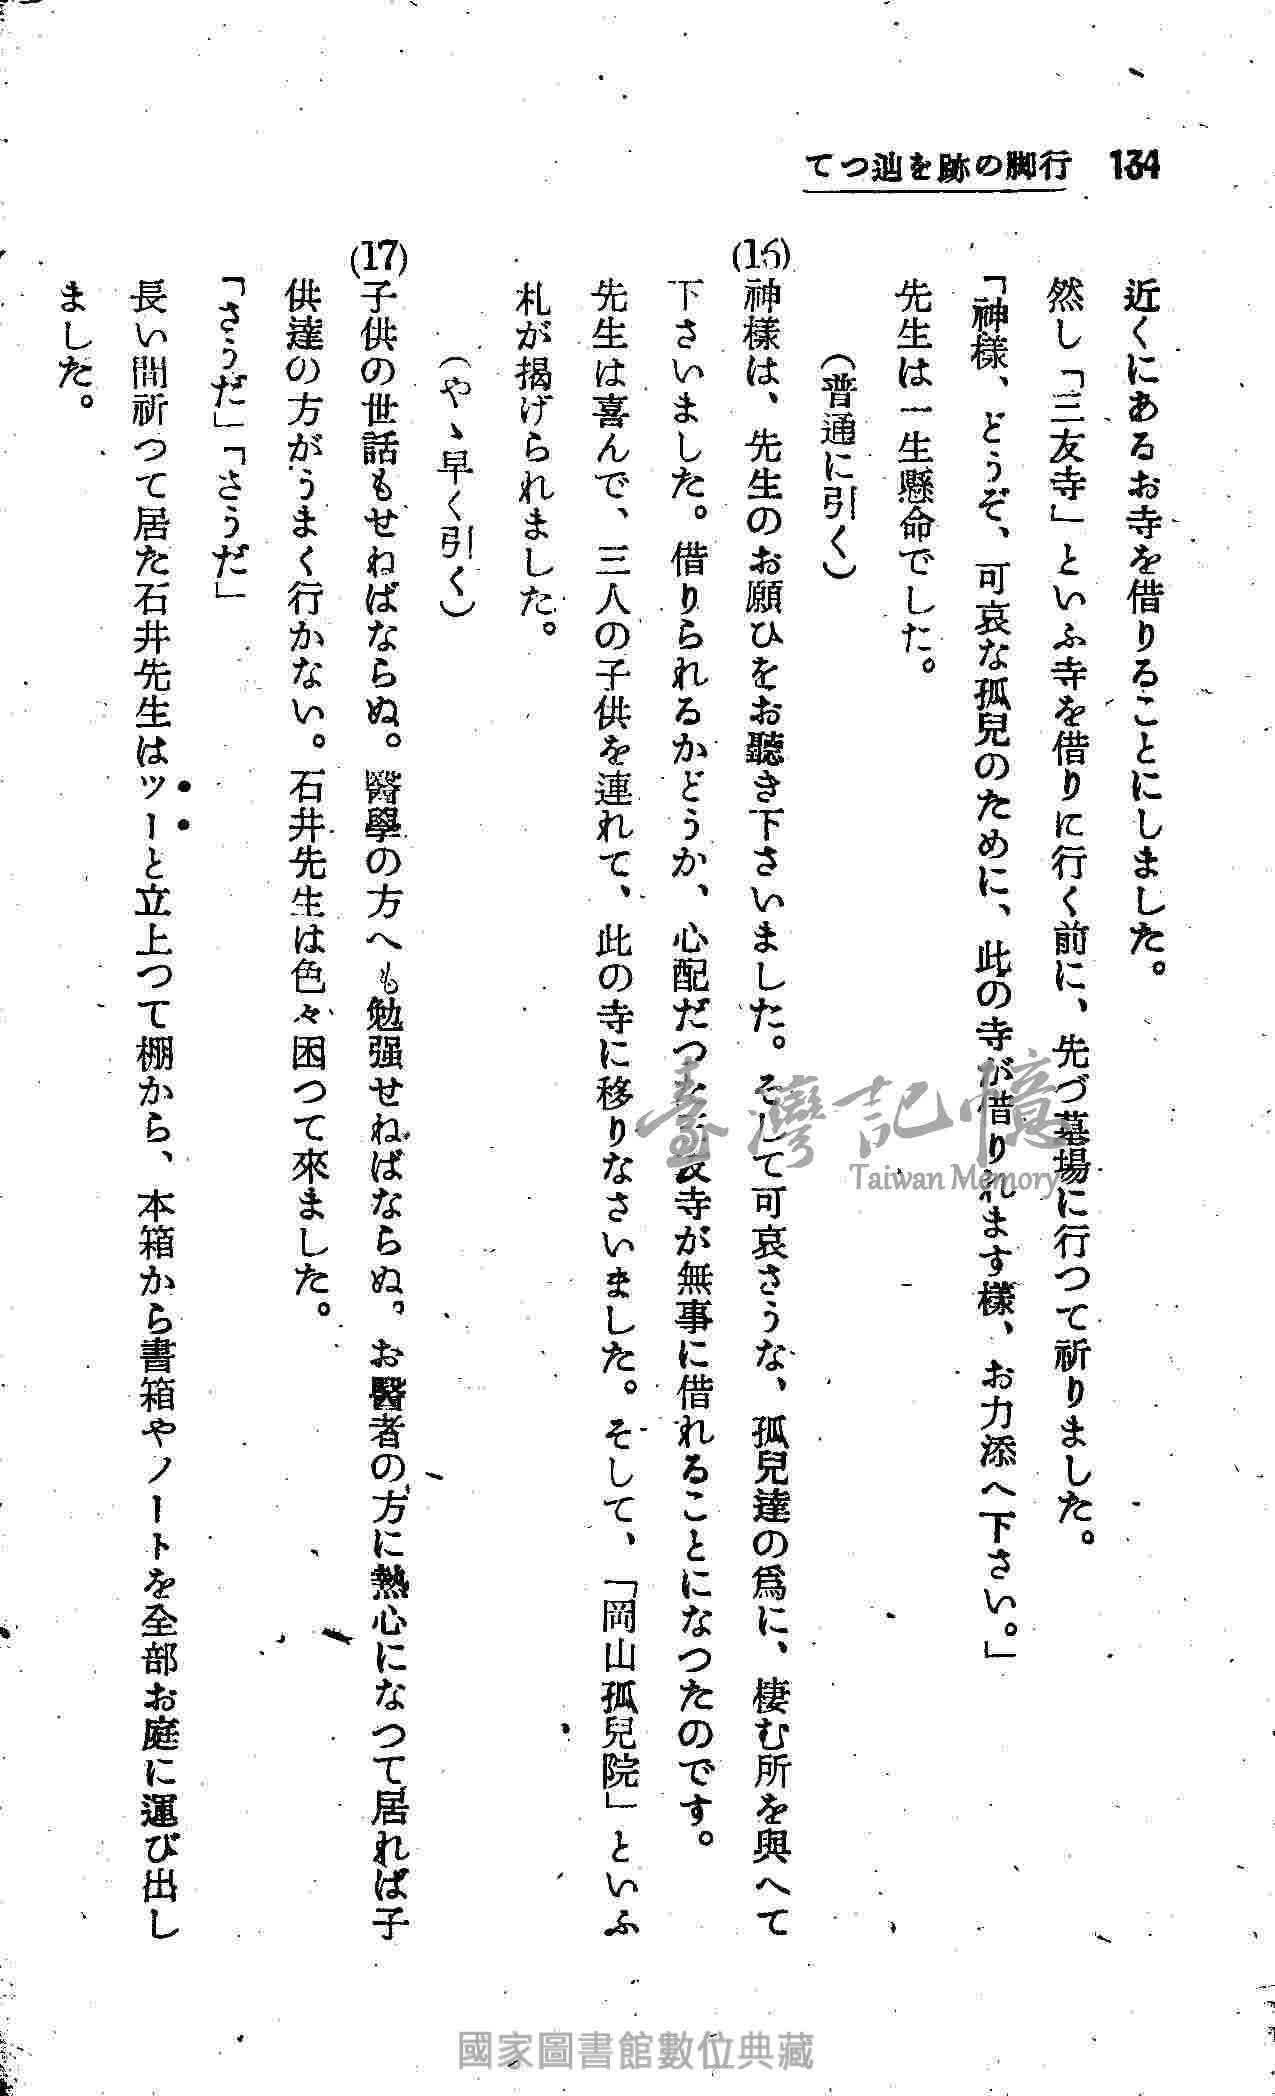 134 行脚の跡を辿つて
近くにあるお寺を借りることにしました。
然し「三友寺」といふ寺を借りに行く前に、先づ墓場に行つて祈りました。
「神樣、どうぞ、可哀な孤兒のために、此の寺が借りれます樣、お力添へ下さい。」
先生は一生懸命でした。
(普通に引く)
(16)神樣は、先生のお願ひをお聽き下さいました。そして可哀さうな、孤兒達の爲に、棲む所を與へて
下さいました。借りられるかどうか、心配だつた三友寺が無事に借れることになつたのです。
先生は喜んで、三人の子供を連れて、此の寺に移りなさいました。そして、「岡山孤兒院」といふ
札が揭げられました。
(やゝ早く引く)
(17)子供の世話もせねばならぬ。醫學の方へも勉强せねばならぬ。お醫者の方に熱心になつて居れば子
供達の方がうまく行かない。石井先生は色々困つて來ました。
「さうだ」「さうだ」
長い間祈つて居た石井先生はツーと立上つて棚から、本箱から書箱やノートを全部お庭に運び出し
ました。
臺灣記憶
Taiwan Memory
國家圖書館數位典藏